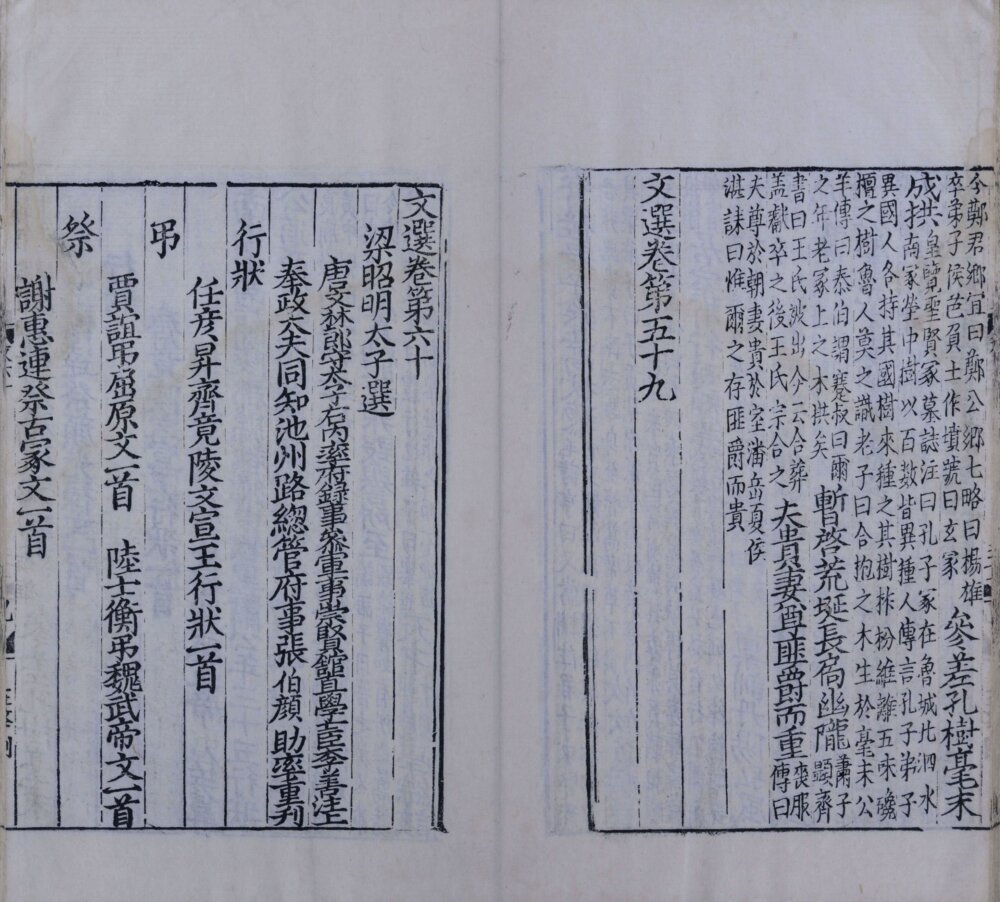 今鄭君鄉宜曰鄭公鄉七略曰楊雄
卒弟子侯芭負土作墳號曰玄冢
參差孔樹毫末
成拱
皇覽聖賢冢墓誌注曰孔子冢在魯城北泗水
南冢塋中樹以百數皆異種人傳言孔子弟子
異國人各持其國樹來種之其樹柞枌維離五味毚
檀之樹魯人莫之識老子曰合抱之木生於毫末公
羊傳曰泰伯謂蹇叔曰爾
之年老冢上之木拱矣
暫啓荒埏長扃幽隴
蕭子
顯齊
書曰王氏被出今云合葬
蓋瓛卒之後王氏宗合之
夫貴妻尊匪爵而重
喪服
傳曰
夫尊於朝妻貴於室潘岳夏侯
湛誄曰惟爾之存匪爵而貴
文選卷第五十九
文選卷第六十
梁昭明太子選
唐文林郎守太子右內率府録事叅軍事崇賢館直學士臣李善注
奉政大夫同知池州路總管府事張伯顔助率重刊
行狀
任彦昇齊竟陵文宣王行狀一首
弔
賈誼弔屈原文一首　陸士衡弔魏武帝文一首
祭
謝惠連祭古冢文一首